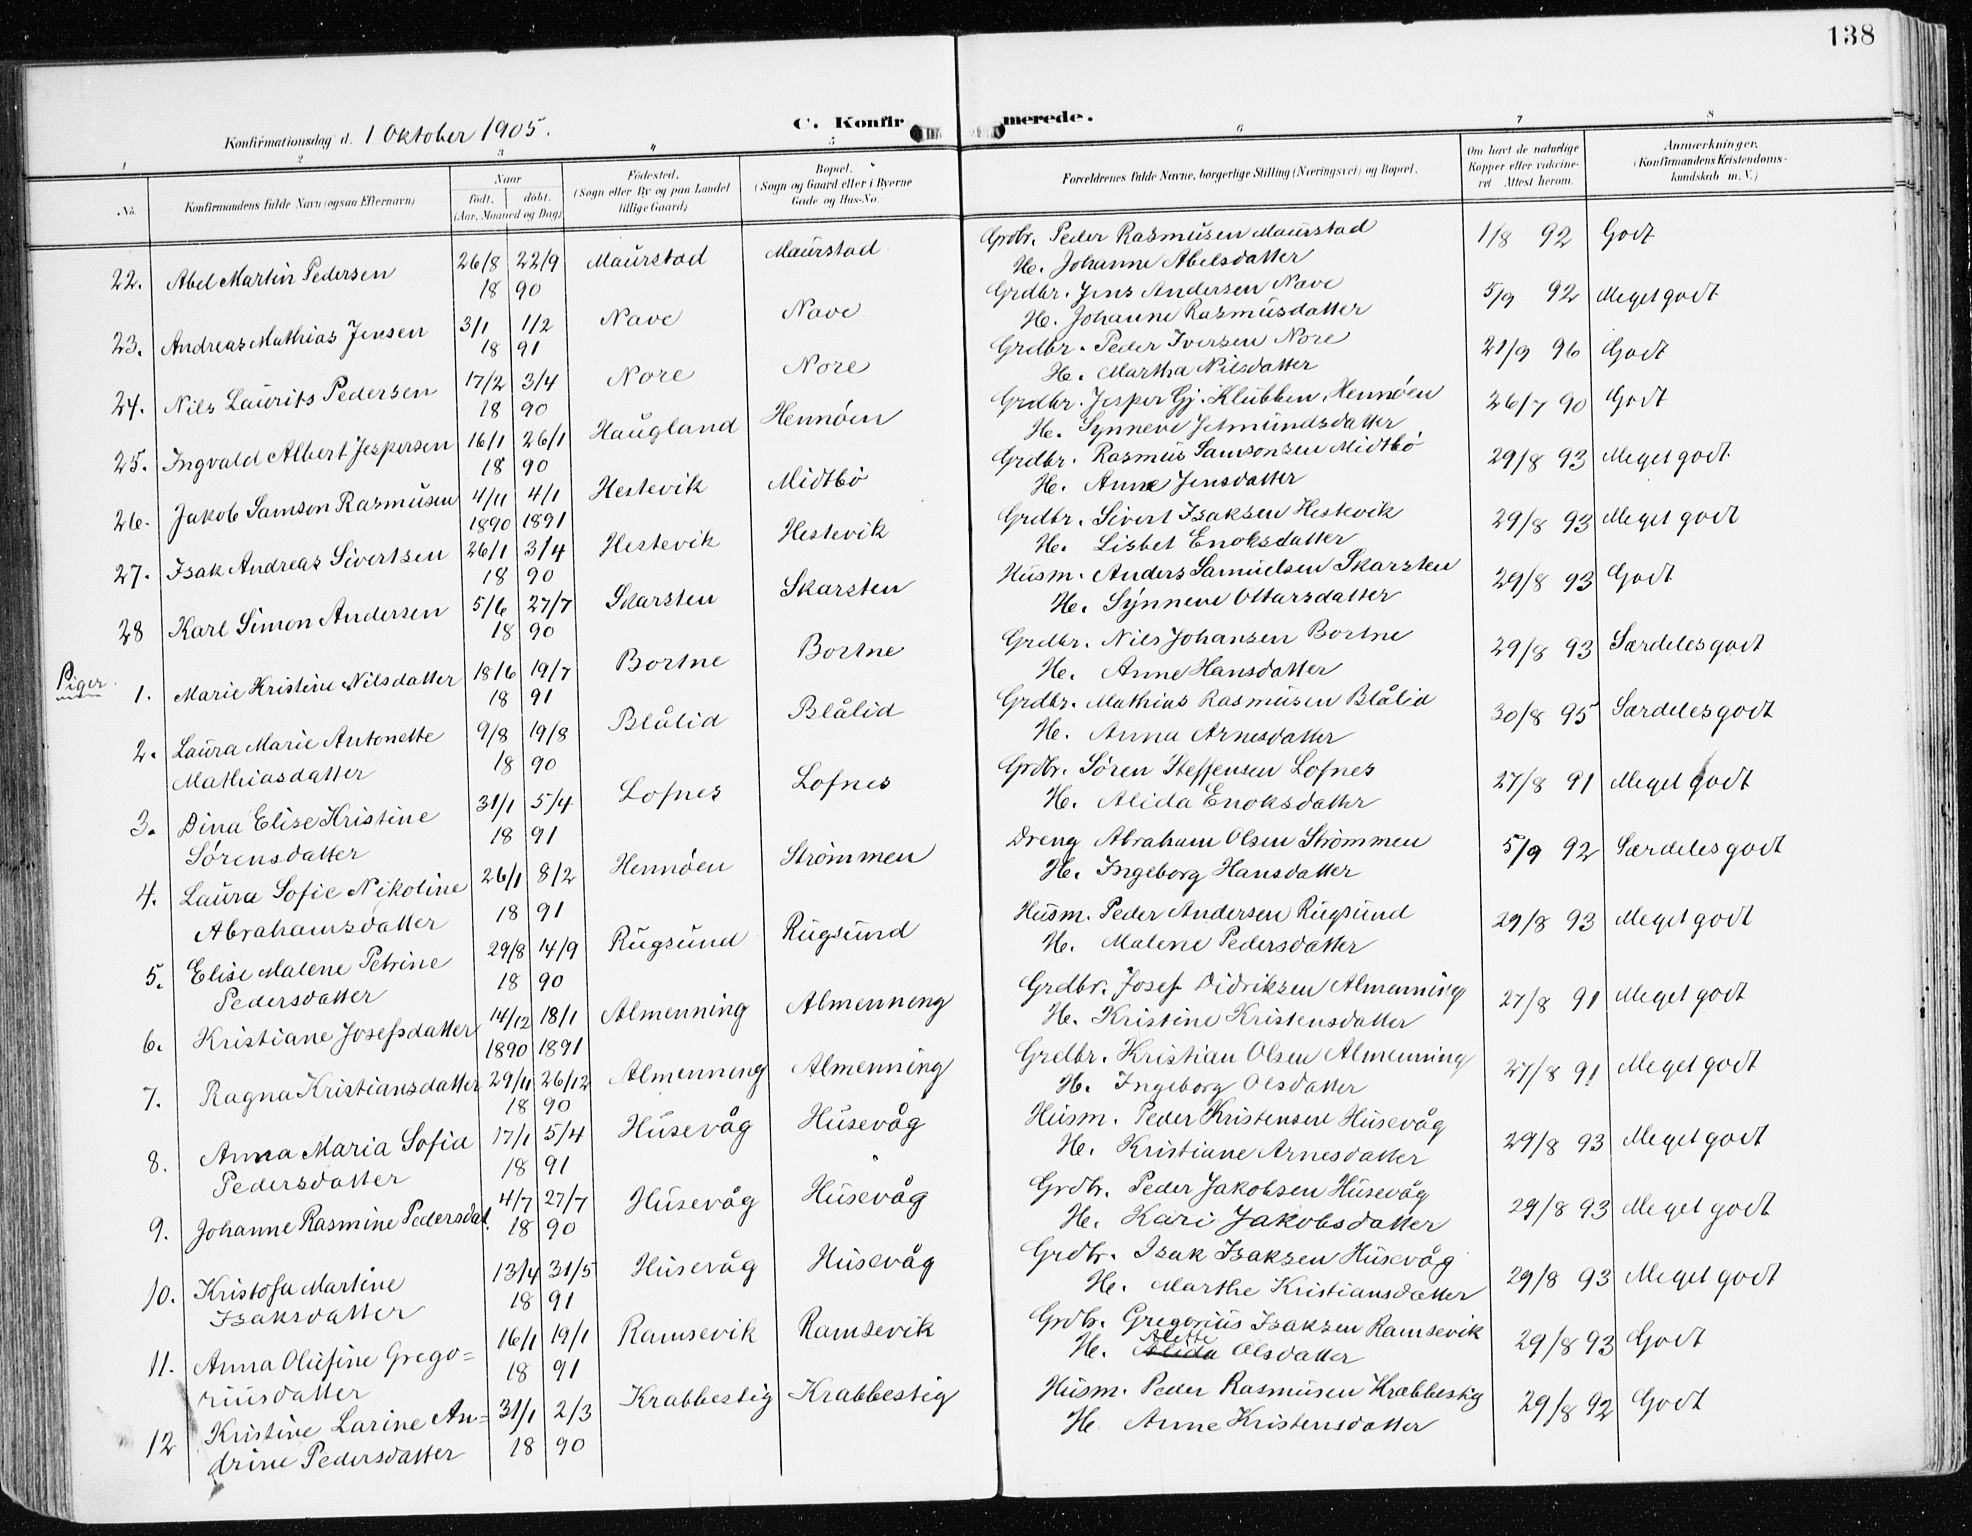 138
C. Konfirmerede.
Konfirmationsdag d. 1 Oktober 1905.
1 2 3 4 5 6 7 8
No. Konfirmandens fulde Navn (ogsaa Efternavn) Naar født. døbt. (Aar, Maaned og Dag) Fødested. (Sogn eller By og paa Landet tillige Gaard) Bopæl. (Sogn og Gaard eller i Byerne Gade og Hus-No. Forældrenes fulde Navne, borgerlige Stilling (Næringsvei) og Bopæl. Om havt de naturlige Kopper eller vakcineret. Attest herom. Anmærkninger. (Konfirmandens Kristendomskundskab m. V.)
22. Abel Martin Pedersen 26/8 22/9 Maurstad Maurstad Grdbr. Peder Rasmusen Maurstad 1/8 92 Godt
18 90 H. Johanne Abelsdatter
23. Andreas Mathias Jensen 3/1 1/2 Nave Nave Grdbr. Jens Andersen Nave 5/9 92 Meget godt
18 91 H. Johanne Rasmusdatter
24. Nils Laurits Pedersen 17/2 3/4 Nore Nore Grdbr. Peder Iversen Nore 21/9 96 Godt
18 90 H. Martha Nilsdatter
25. Ingvald Albert Jespersen 16/1 26/1 Haugland Hennøen Grdbr. Jesper Gj. Klubben, Hennøen 26/7 90 Godt
18 90 H. Synneve Jetmundsdatter
26. Jakob Samson Rasmusen 4/11 4/1 Hestevik Midtbø Grdbr. Rasmus Samsonsen Midtbø 29/8 93 Meget godt.
1890 1891 H. Anne Jensdatter
27. Isak Andreas Sivertsen 26/1 3/4 Hestevik Hestevik Grdbr. Sivert Isaksen Hestevik 29/8 93 Meget godt
18 90 H. Lisbet Enoksdatter
28 Karl Simon Andersen 5/6 27/7 Skarsten Skarsten Husm. Anders Samuelsen Skarsten 29/8 93 Godt
18 90 H. Synneve Ottarsdatter
Piger. 1. Marie Kristine Nilsdatter 18/6 19/7 Bortne Bortne Grdbr. Nils Johansen Bortne 29/8 93 Særdeles godt
18 91 H. Anne Hansdatter
2. Laura Marie Antonette 9/8 19/8 Blålid Blålid Grdbr. Mathias Rasmusen Blålid 30/8 95 Særdeles godt
Mathiasdatter 18 90 H. Anna Arnesdatter
3. Dina Elise Kristine 31/1 5/4 Lofnes Lofnes Grdbr. Søren Steffensen Lofnes 27/8 91 Meget godt
Sørensdatter 18 91 H. Alida Enoksdatter
4. Laura Sofie Nikoline 26/1 8/2 Hennøen Strømmen Dreng Abraham Olsen Strømmen 5/9 92 Særdeles godt
Abrahamsdatter 18 91 H. Ingeborg Hansdatter
5. Elise Malene Petrine 29/8 14/9 Rugsund Rugsund Husm. Peder Andersen Rugsund 29/8 93 Meget godt
Pedersdatter 18 90 H. Malene Pedersdatter
6. Kristiane Josefsdatter 14/12 18/1 Almenning Almenning Grdbr. Josef Didriksen Almenning 27/8 91 Meget godt
1890 1891 H. Kristine Kristensdatter
7. Ragna Kristiansdatter 29/11 26/12 Almenning Almenning Grdbr. Kristian Olsen Almenning 27/8 91 Meget godt
18 90 H. Ingeborg Olsdatter
8. Anna Maria Sofia 17/1 5/4 Husevåg Husevåg Husm. Peder Kristensen Husevåg 29/8 93 Meget godt
Pedersdatter 18 91 H. Kristiane Arnesdatter
9. Johanne Rasmine Pedersdat. 4/7 27/7 Husevåg Husevåg Grdb. Peder Jakobsen Husevåg 29/8 93 Meget godt
18 90 H. Kari Jakobsdatter
10. Kristofa Martine 13/4 31/5 Husevåg Husevåg Grdb. Isak Isaksen Husevåg 29/8 93 Meget godt
Isaksdatter 18 91 H. Marthe Kristiansdatter
11. Anna Olufine Grego= 16/1 19/1 Ramsevik Ramsevik Grdb. Gregorius Isaksen Ramsevik 29/8 93 Godt
riusdatter 18 91 H. Alida Alette Olsdatter
12 Kristine Larine An= 31/1 2/3 Krabbestig Krabbestig Husm. Peder Rasmusen Krabbestig 29/8 92 Godt
drine Pedersdatter 18 90 H. Anne Kristensdatter